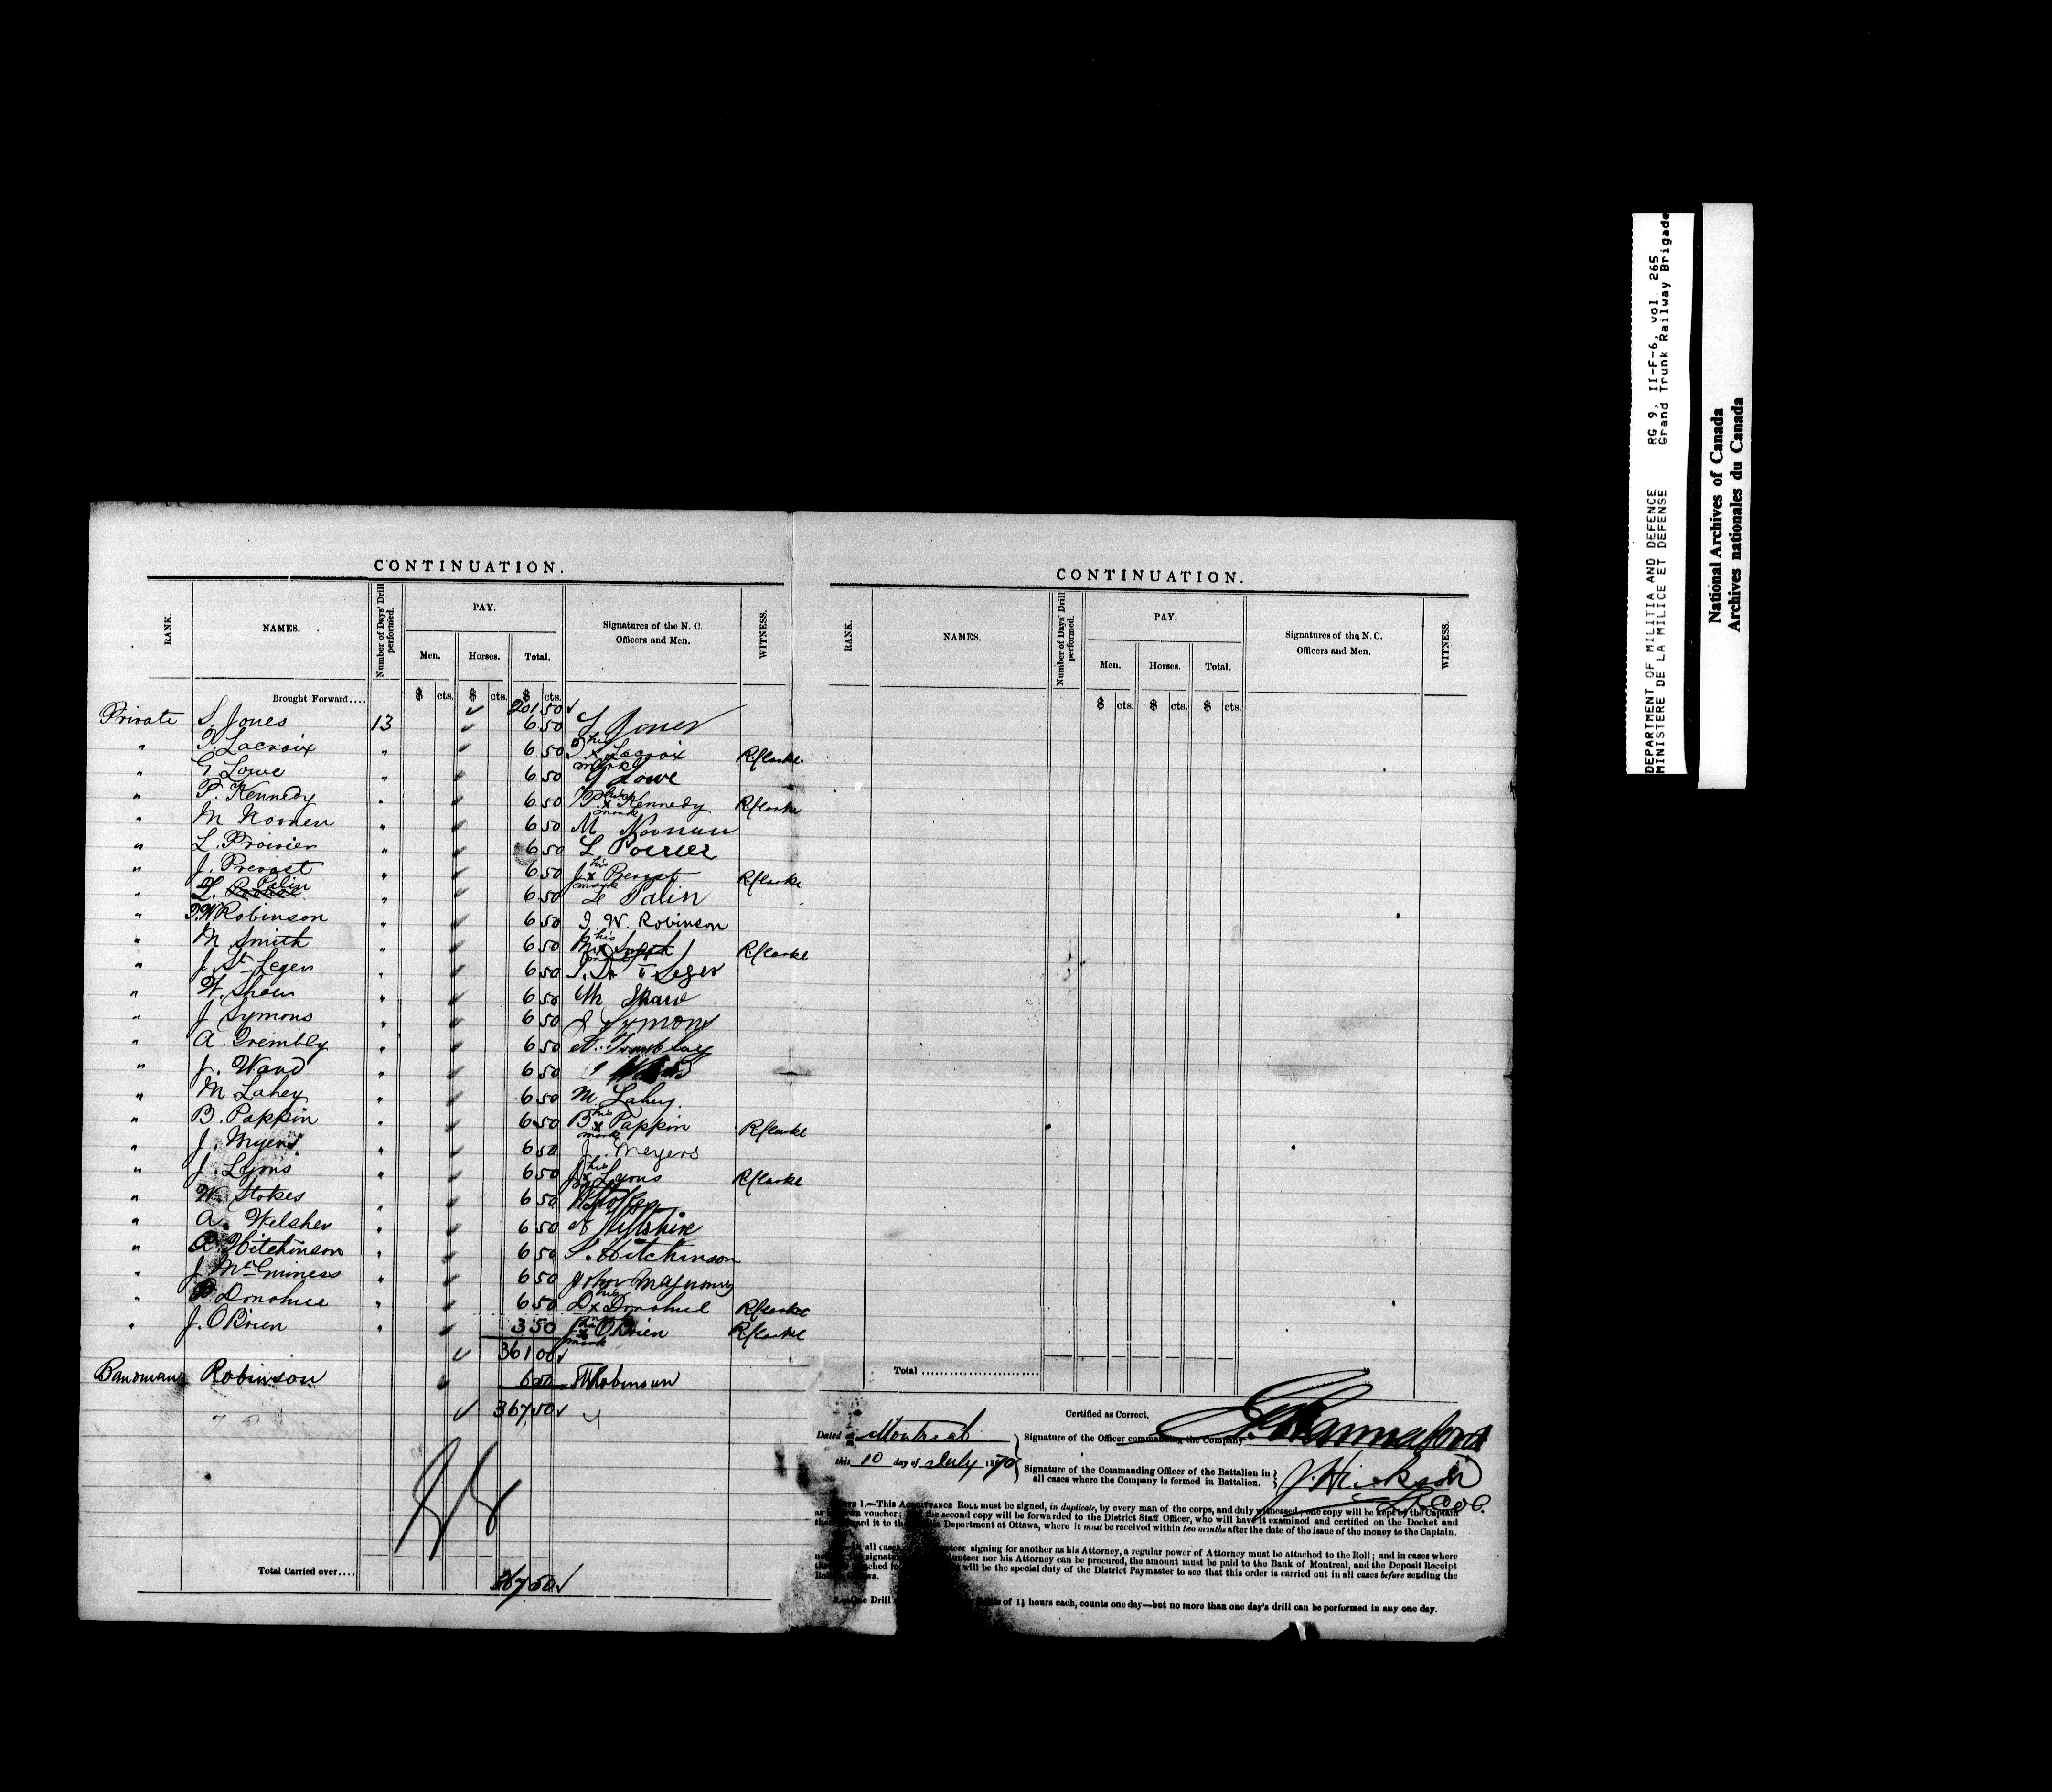 CONTINUATION.
RANK. NAMES. Number of Days' Drill performed. PAY. Men. Horses. Total. Signatures of the N. C. Officers and Men. WITNESS.
$ cts. $ cts. $ cts.
Brought Forward.... 201 50
Private S. Jones 13 6 50 S Jones
" T. Lacroix " 6 50 his x Lacroix mark R Clarke
" G Lowe " 6 50 G Lowe
" P. Kennedy " 6 50 P. his x Kennedy mark R Clarke
" M Noonen " 6 50 M Noonan
" L. Proirier " 6 50 L Poirier
" J. Prevost " 6 50 J his x Prevost mark R Clarke
" L. Palin " 6 50 L Palin
" T.W Robinson " 6 50 T. W. Robinson
" M Smith " 6 50 M his x Smith mark R Clarke
" J. St Leger " 6 50 Leger
" W. Shaw " 6 50 Wm Shaw
" J Symons " 6 50 J Symons
" A. Trembly " 6 50 A. Tremblay
" J. Ward " 6 50 J Ward
" M Lahey " 6 50 M. Lahey
" B. Pappin " 6 50 B his x Pappin mark R Clarke
" J. Myers " 6 50 J. Meyers
" J. Lyons " 6 50 J his x Lyons R Clarke
" W. Stokes " 6 50 W Stokes
" A. Welsher " 6 50 A
" Hitchinson " 6 50 S. Hitchinson
" J McGuiness " 6 50 John
" D. Donohue " 6 50 D his x Donohue R Clarke
" J. O'Brien " 3 50 J his x O'Brien mark R Clarke
361 00
Bandman Robinson 6 50 Robinson
367 50
Total Carried over.... 367,50
CONTINUATION.
RANK. NAMES. Number of Days' Drill performed. PAY. Men. Horses. Total. Signatures of the N. C. Officers and Men. WITNESS.
$ cts. $ cts. $ cts.
Total ........................
Certified as Correct,
Dated at Montreal
Signature of the Officer commanding the Company Hannaford
this 10 day of July 1870
Signature of the Commanding Officer of the Battalion in all cases where the Company is formed in Battalion. J. Hickson
NOTE 1.—This ACQUITTANCE ROLL must be signed, in duplicate, by every man of the corps, and duly witnessed; one copy will be kept by the Captain
as voucher; the second copy will be forwarded to the District Staff Officer, who will have it examined and certified on the Docket and
it to the Department at Ottawa, where it must be received within two months after the date of the issue of the money to the Captain.
all cases signing for another as his Attorney, a regular power of Attorney must be attached to the Roll; and in cases where
nor his Attorney can be procured, the amount must be paid to the Bank of Montreal, and the Deposit Receipt
attached to will be the special duty of the District Paymaster to see that this order is carried out in all cases before sending the
One Drill of 1½ hours each, counts one day—but no more than one day's drill can be performed in any one day.
DEPARTMENT OF MILITIA AND DEFENCE RG 9, II-F-6, vol. 265
MINISTERE DE LA MILICE ET DEFENSE Grand Trunk Railway Brigade
National Archives of Canada
Archives nationales du Canada